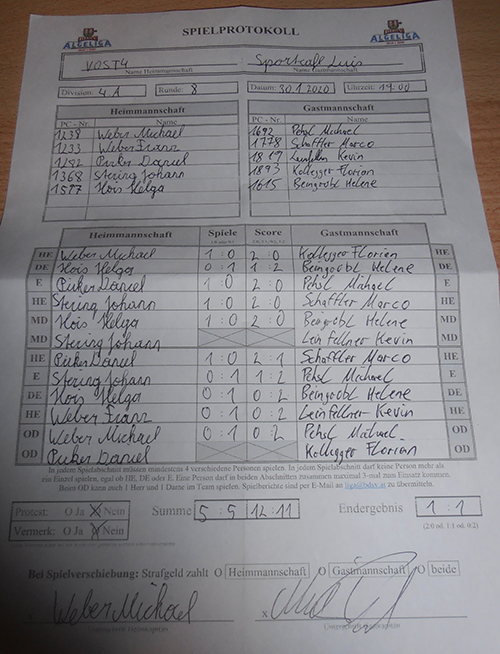 SPIELPROTOKOLL
ALGELIGA ALGELIGA
VOST4 Sportcafe Luis
Name Heimmannschaft Name Gastmannschaft
Division: 4.A Runde: 8 Datum: 30.1.2020 Uhrzeit: 19:00
Heimmannschaft Gastmannschaft
PC - Nr. Name PC - Nr. Name
1238 Weber Michael 1692 Pehsl Michael
1233 Weber Franz 1778 Schaffler Marco
1292 Pirker Daniel 1819 Leinfellner Kevin
1368 Stering Johann 1893 Kollegger Florian
1577 Hois Helga 1615 Beingrobl Helene
Heimmannschaft Spiele Score Gastmannschaft
HE Weber Michael 1 : 0 2 : 0 Kollegger Florian HE
DE Hois Helga 0 : 1 1 : 2 Beingrobl Helene DE
E Pirker Daniel 1 : 0 2 : 0 Pehsl Michael E
HE Stering Johann 1 : 0 2 : 0 Schaffler Marco HE
MD Hois Helga 1 : 0 2 : 0 Beingrobl Helene MD
MD Stering Johann Leinfellner Kevin MD
HE Pirker Daniel 1 : 0 2 : 1 Schaffler Marco HE
E Stering Johann 0 : 1 1 : 2 Pehsl Michael E
DE Hois Helga 0 : 1 0 : 2 Beingrobl Helene DE
HE Weber Franz 0 : 1 0 : 2 Leinfellner Kevin HE
OD Weber Michael 0 : 1 0 : 2 Pehsl Michael OD
OD Pirker Daniel Kollegger Florian OD
In jedem Spielabschnitt müssen mindestens 4 verschiedene Personen spielen. In jedem Spielabschnitt darf keine Person mehr als
ein Einzel spielen, egal ob HE, DE oder E. Eine Person darf in beiden Abschnitten zusammen maximal 3-mal zum Einsatz kommen.
Beim OD kann auch 1 Herr und 1 Dame im Team spielen. Spielberichte sind per E-Mail an liga@bdsv.at zu übermitteln.
Protest: O Ja X Nein Summe 5 : 5 12 : 11 Endergebnis 1 : 1
Vermerk: O Ja X Nein (2:0 od. 1:1 od. 0:2)
Bei Spielverschiebung: Strafgeld zahlt O Heimmannschaft O Gastmannschaft O beide
x Weber Michael x